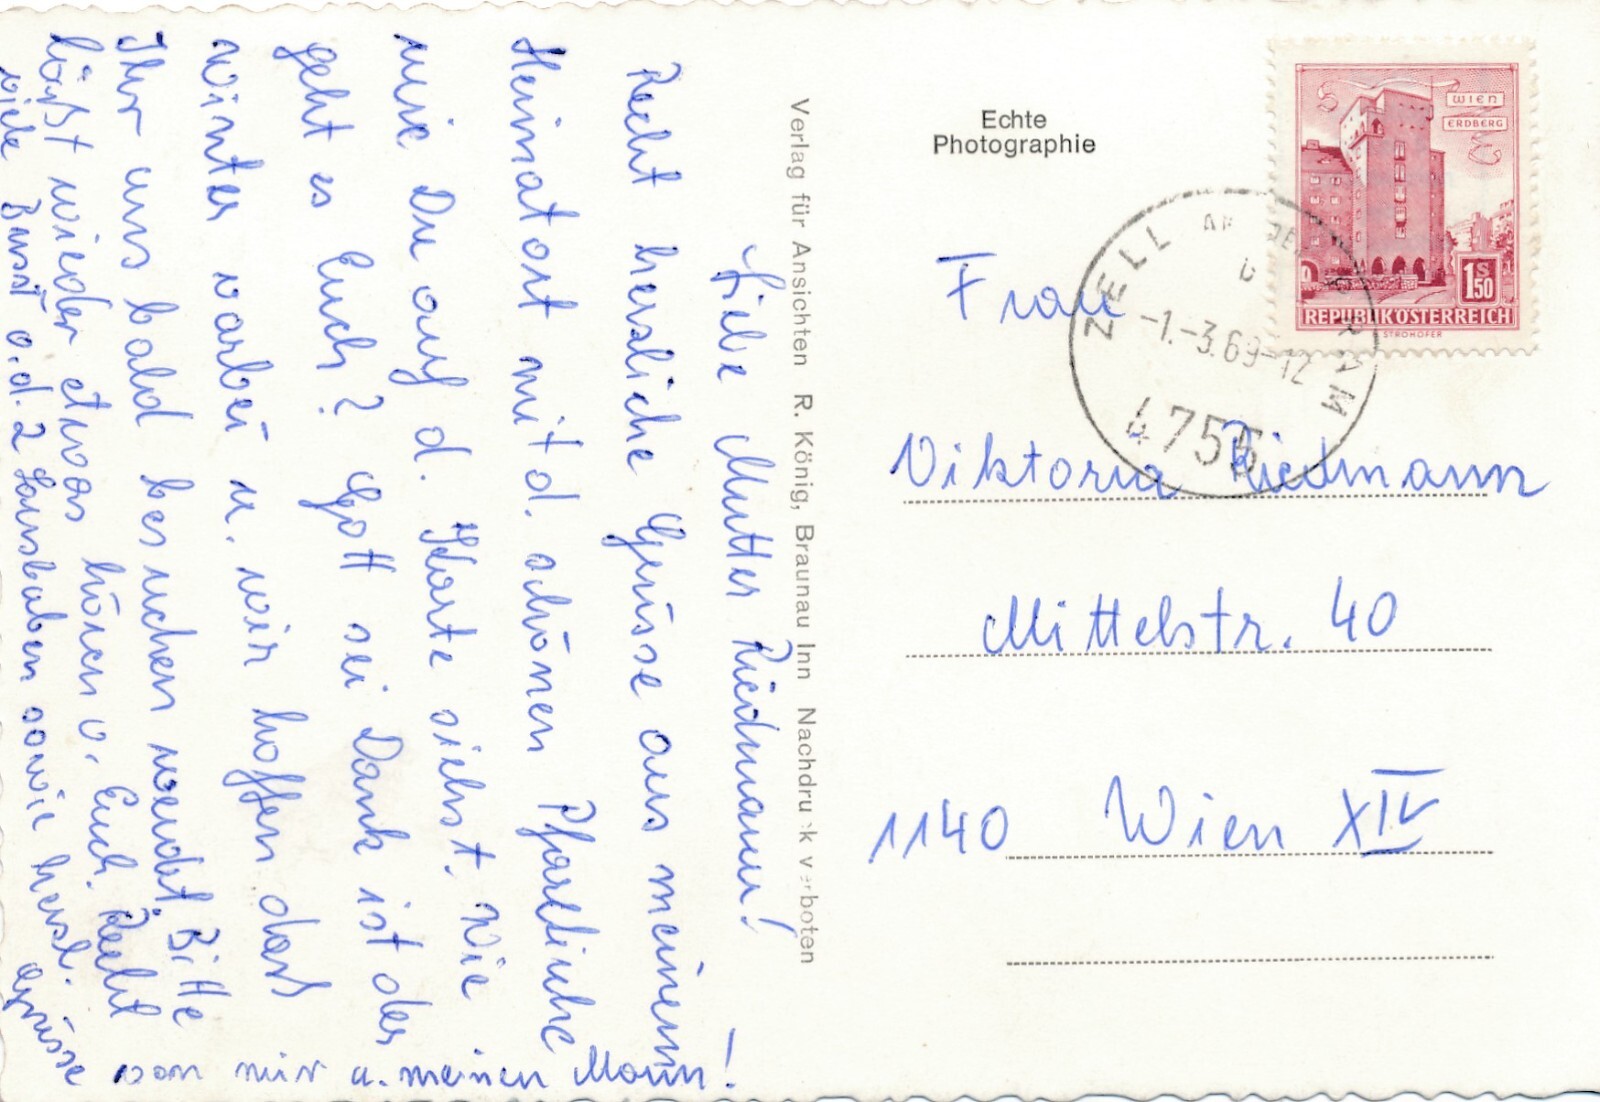 Liebe Mutter Riedmann!
Recht herzliche Grüsse aus meinem
Heimatort mit d. schönen Pfarrkirche
wie Du auf d. Karte siehst. Wie
geht es Euch? Gott sei Dank ist der
Winter vorbei u. wir hoffen dass
Ihr uns bald besuchen werdet. Bitte
lässt wieder etwas hören v. Euch. Recht
viele Bussi a.d. 2 Lausbuben sowie herzl. Grüsse
von mir u. meinen Mann!
Verlag für Ansichten R. König, Braunau Inn Nachdruck verboten
Echte
Photographie
WIEN
ERDBERG
1S50
REPUBLIK ÖSTERREICH
STROHOFER
ZELL AN DER PRAM
b
-1.-3.69-12
4755
Frau
Viktoria Riedmann
Mittelstr. 40
1140 Wien XIV